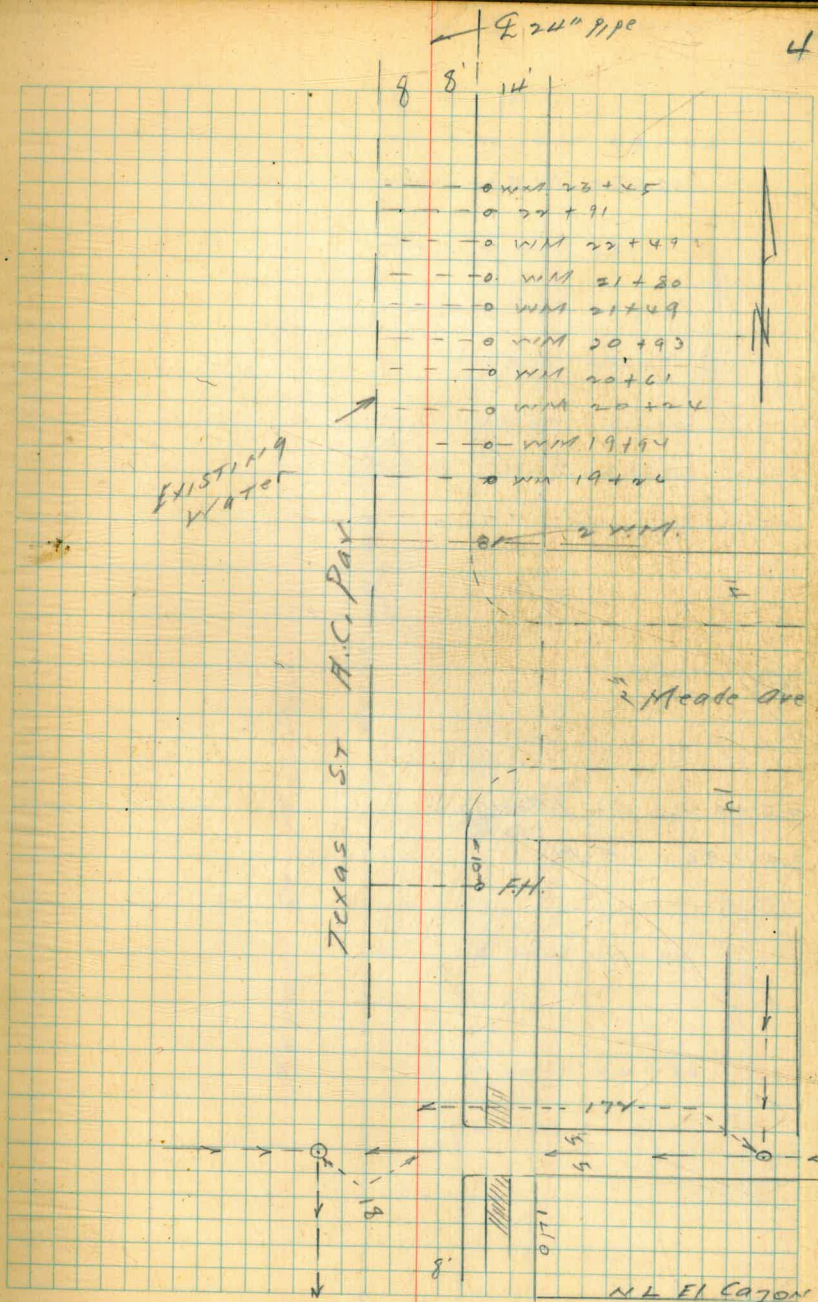 ℄ 24" pipe
4
8 8' 14'
WM 23+45
22+91
WM 22+49
WM 21+80
WM 21+49
WM 20+93
WM 20+61
WM 20+24
WM 19+94
WM 19+22
2 W.M.
Existing
Water
Texas St A.C. Pav.
Meade Ave
F.H.
172
5 5
18
8'
NL El Cajon